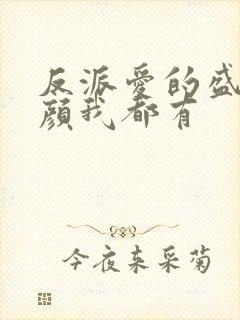 反派爱的盛
颜我都有
今夜来采菊